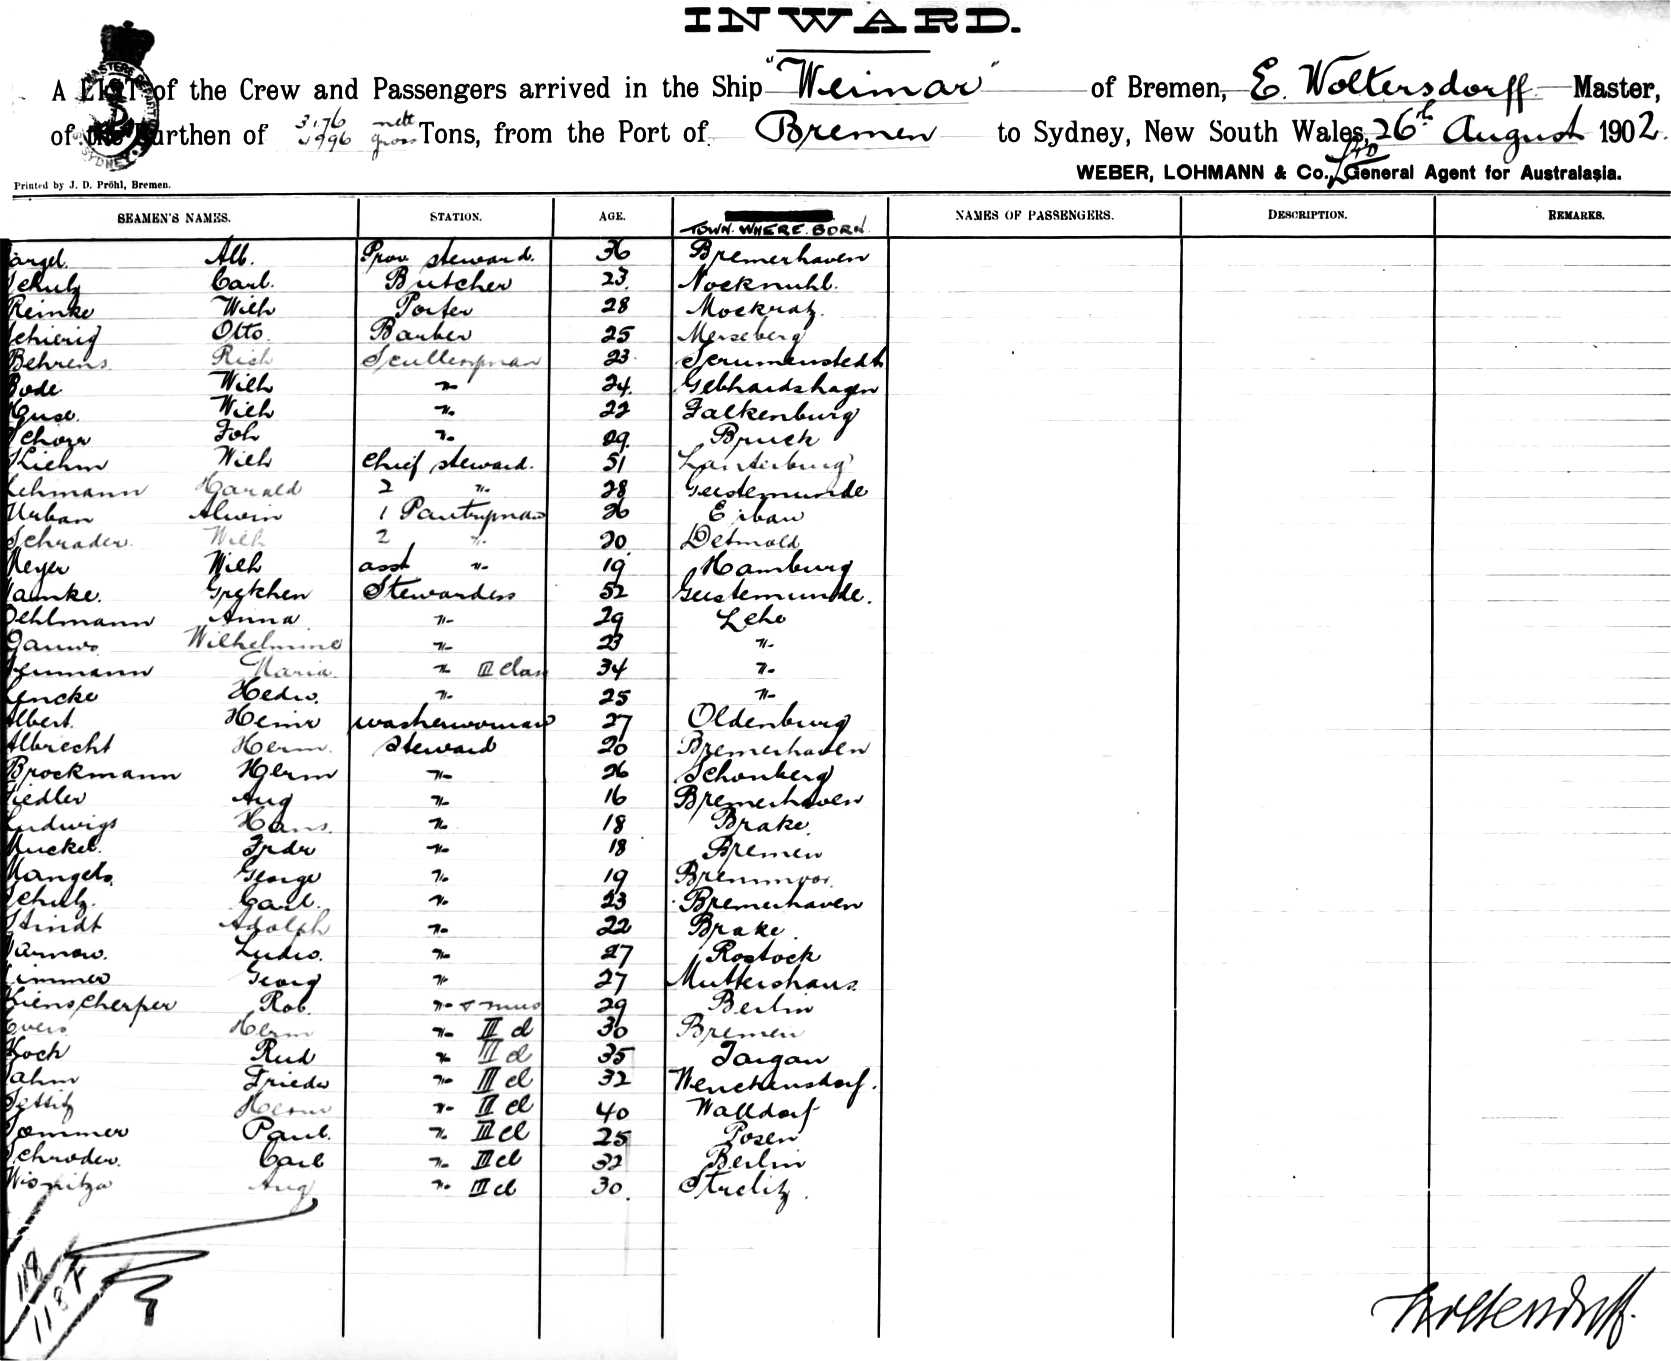 INWARD.
A LIST of the Crew and Passengers arrived in the Ship "Weimar" of Bremen, E. Woltersdorff Master,
of the Burthen of 3176 nett 5996 gross Tons, from the Port of Bremen to Sydney, New South Wales, 26th August 1902.
WEBER, LOHMANN & Co., Ltd General Agent for Australasia.
Printed by J. D. Pröhl, Bremen.
SEAMEN'S NAMES. STATION. AGE. TOWN WHERE BORN. NAMES OF PASSENGERS. DESCRIPTION. REMARKS.
argel. Alb. Prov steward. 36 Bremerhaven
Schulz Carl. Butcher 23 Nocknuhl.
Reinke Wilh Porter 28 Mockratz.
Schierig Otto. Barber 25 Merseberg
Behrens Rich Sculleryman 23 Scrumenstedt
Bode Wilh " 24. Gebhardshagen
Kruse. Wilh " 22 Falkenburg
Schorr Joh " 29. Bruck
Thiehm Wilh Chief steward. 51 Lauterburg
Lehmann Harald 2 " 28 Geestemunde
Urban Alwin 1 Pantryman 26 Eibau
Schrader. Wilh 2 " 20 Detmold
Meyer Wilh asst " 19 Hamburg
amke. Gretchen Stewardess 52 Geestemunde.
Oehlmann Anna " 29 Lehe
Wilhelmine " 23 "
Maria. " III Class 34 "
encke Hedw. " 25 "
Albert. Heinr washerwoman 27 Oldenburg
Albrecht Herm. Steward 20 Bremerhaven
Brockmann Herm " 26 Schonberg
Fiedler Aug " 16 Bremerhaven
Ludwigs Hans. " 18 Brake.
Muckel. Frdr " 18 Bremen
Mangels. George " 19 Bremmvor.
Schulz. Carl. " 23 Bremerhaven
Stindt Adolph " 22 Brake.
Warnow. Ludw. " 27 Rostock
Zimmer Georg " 27 Muttershaus.
Kienscherper Rob. " & mus 29 Berlin
Evers Herm " III cl 30 Bremen
Koch Rud " III cl 35 Targau
ahm Friedr " III cl 32 Wenckensdorf.
Herm " II cl 40 Walldorf
Sommer Paul. " III cl 25 Posen
Schroder. Carl " III cl 32 Berlin
Aug " III cl 30. Strelitz.
118
118 F
Woltersdorff.